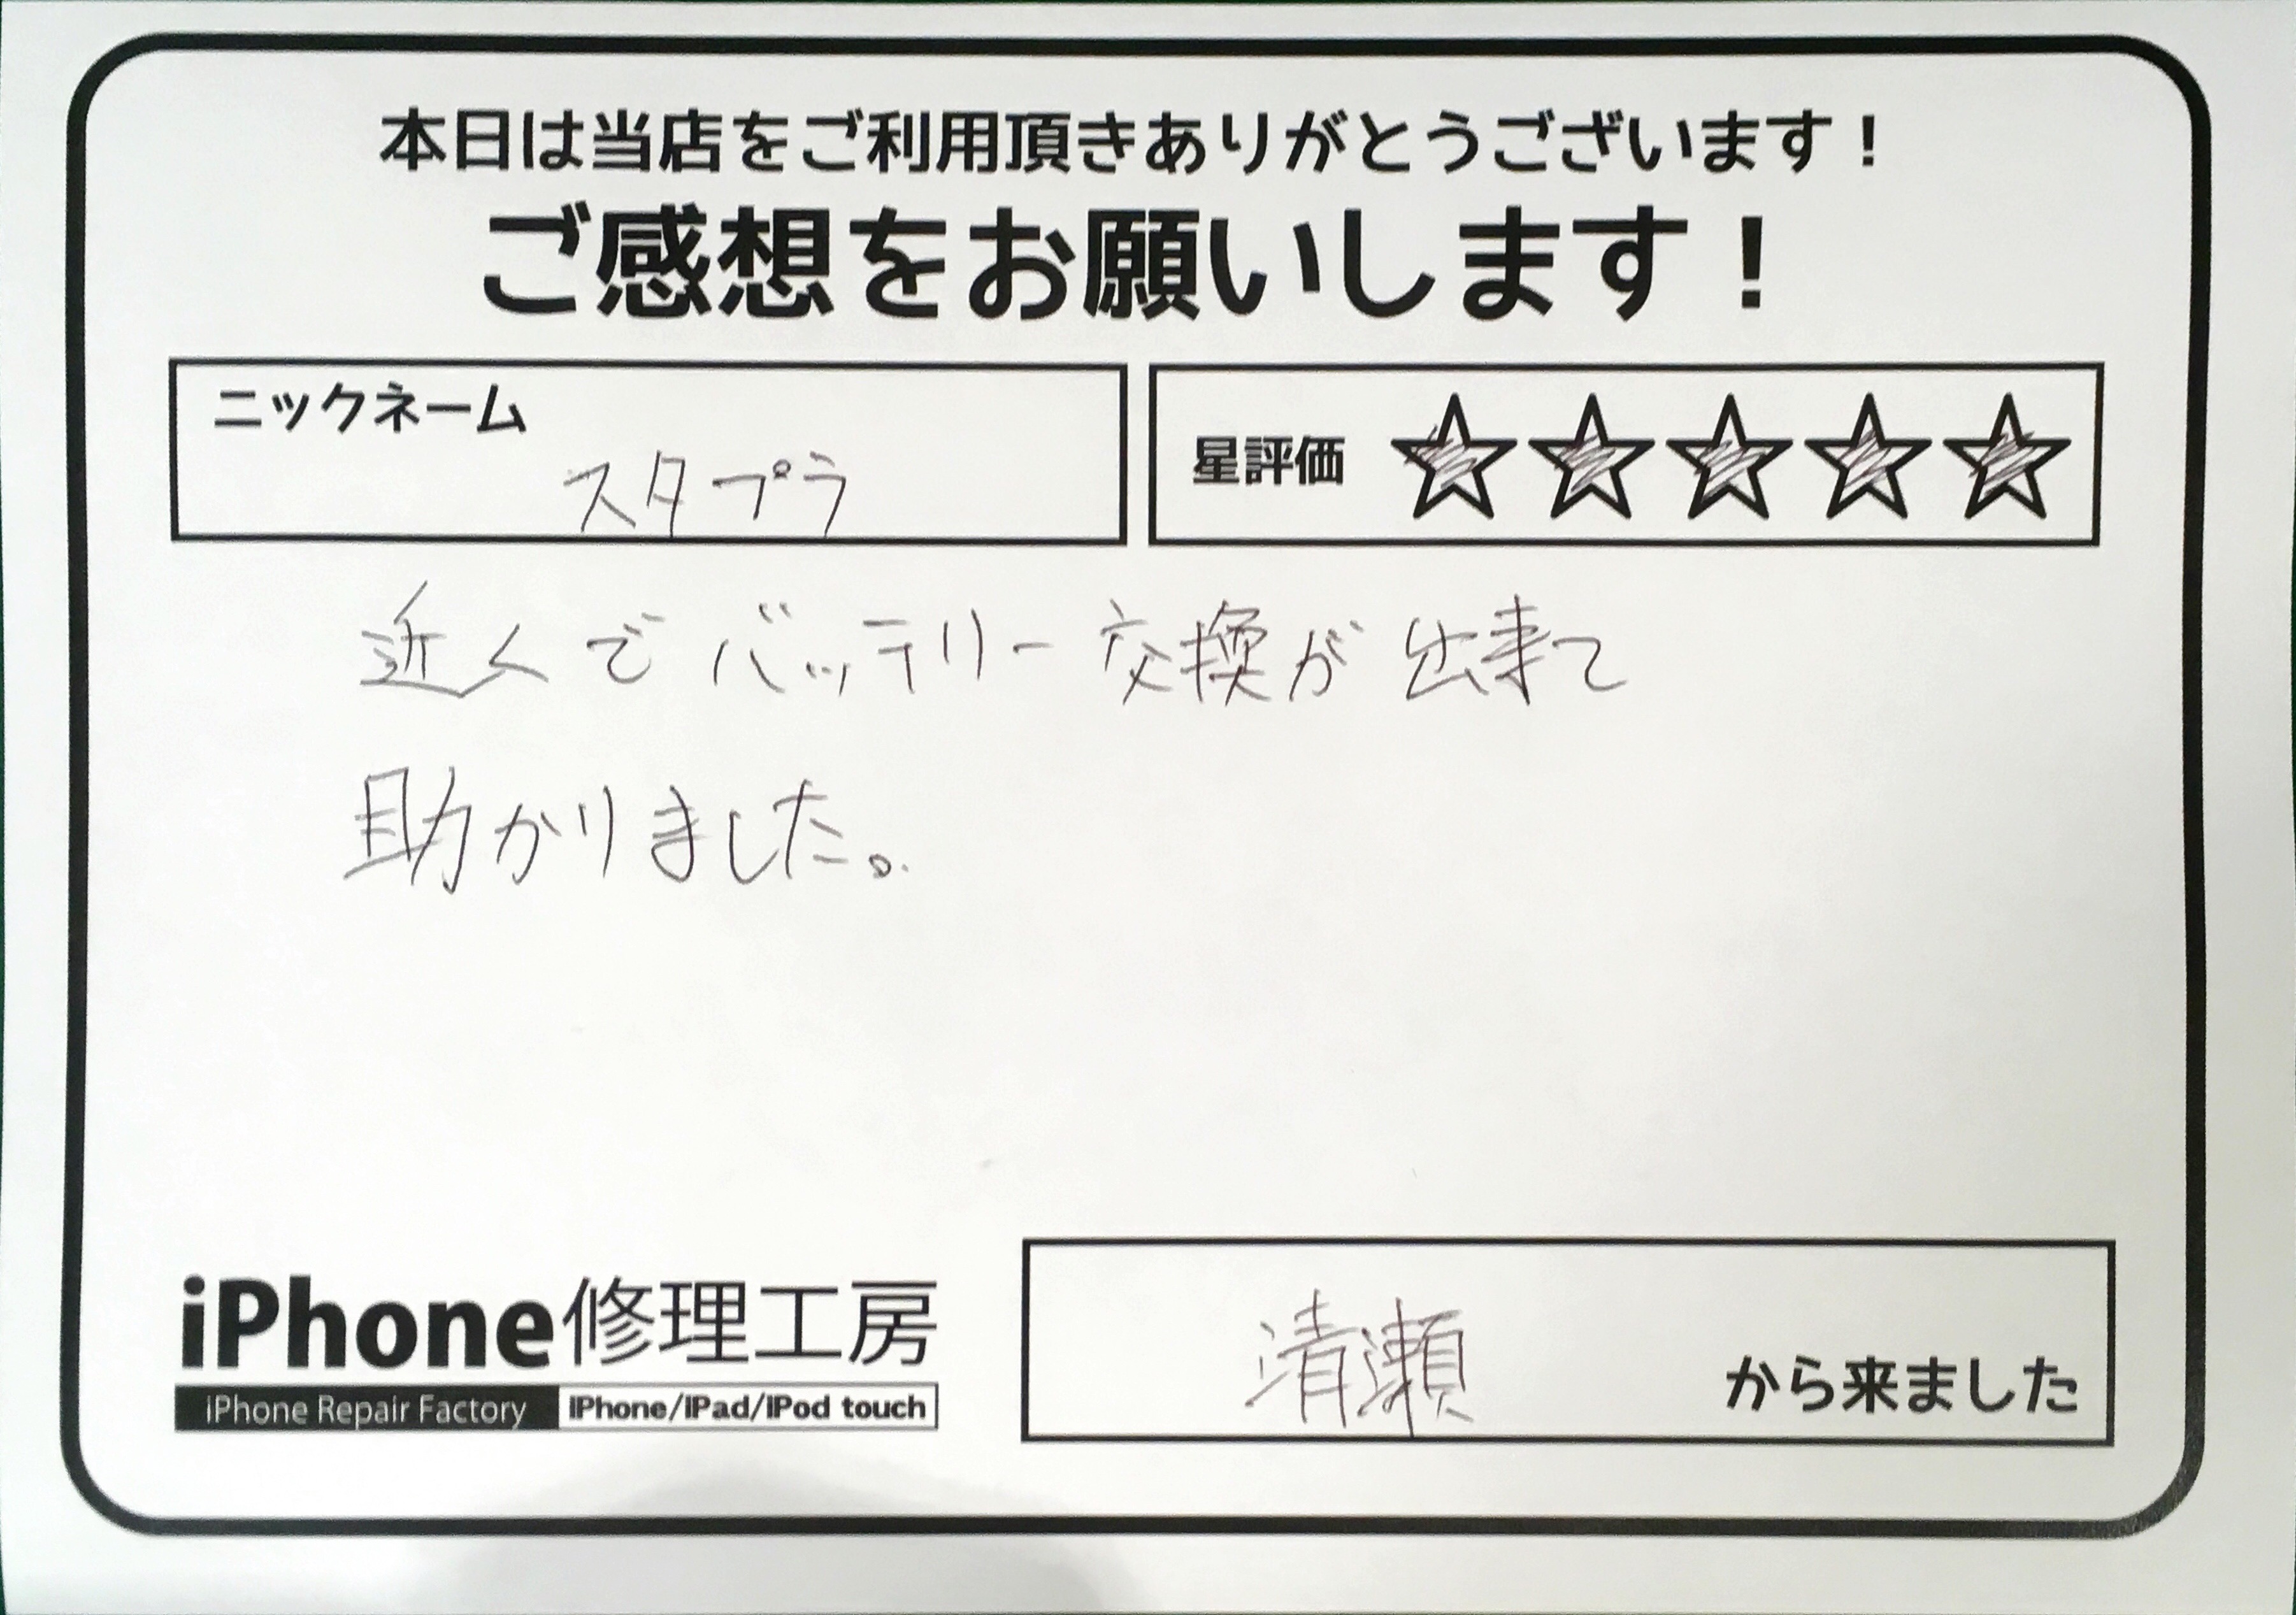 本日は当店をご利用頂きありがとうございます！
ご感想をお願いします！
ニックネーム
スタプラ
星評価 ☆☆☆☆☆
近くでバッテリー交換が出来て
助かりました。
iPhone修理工房
iPhone Repair Factory iPhone/iPad/iPod touch
清瀬 から来ました